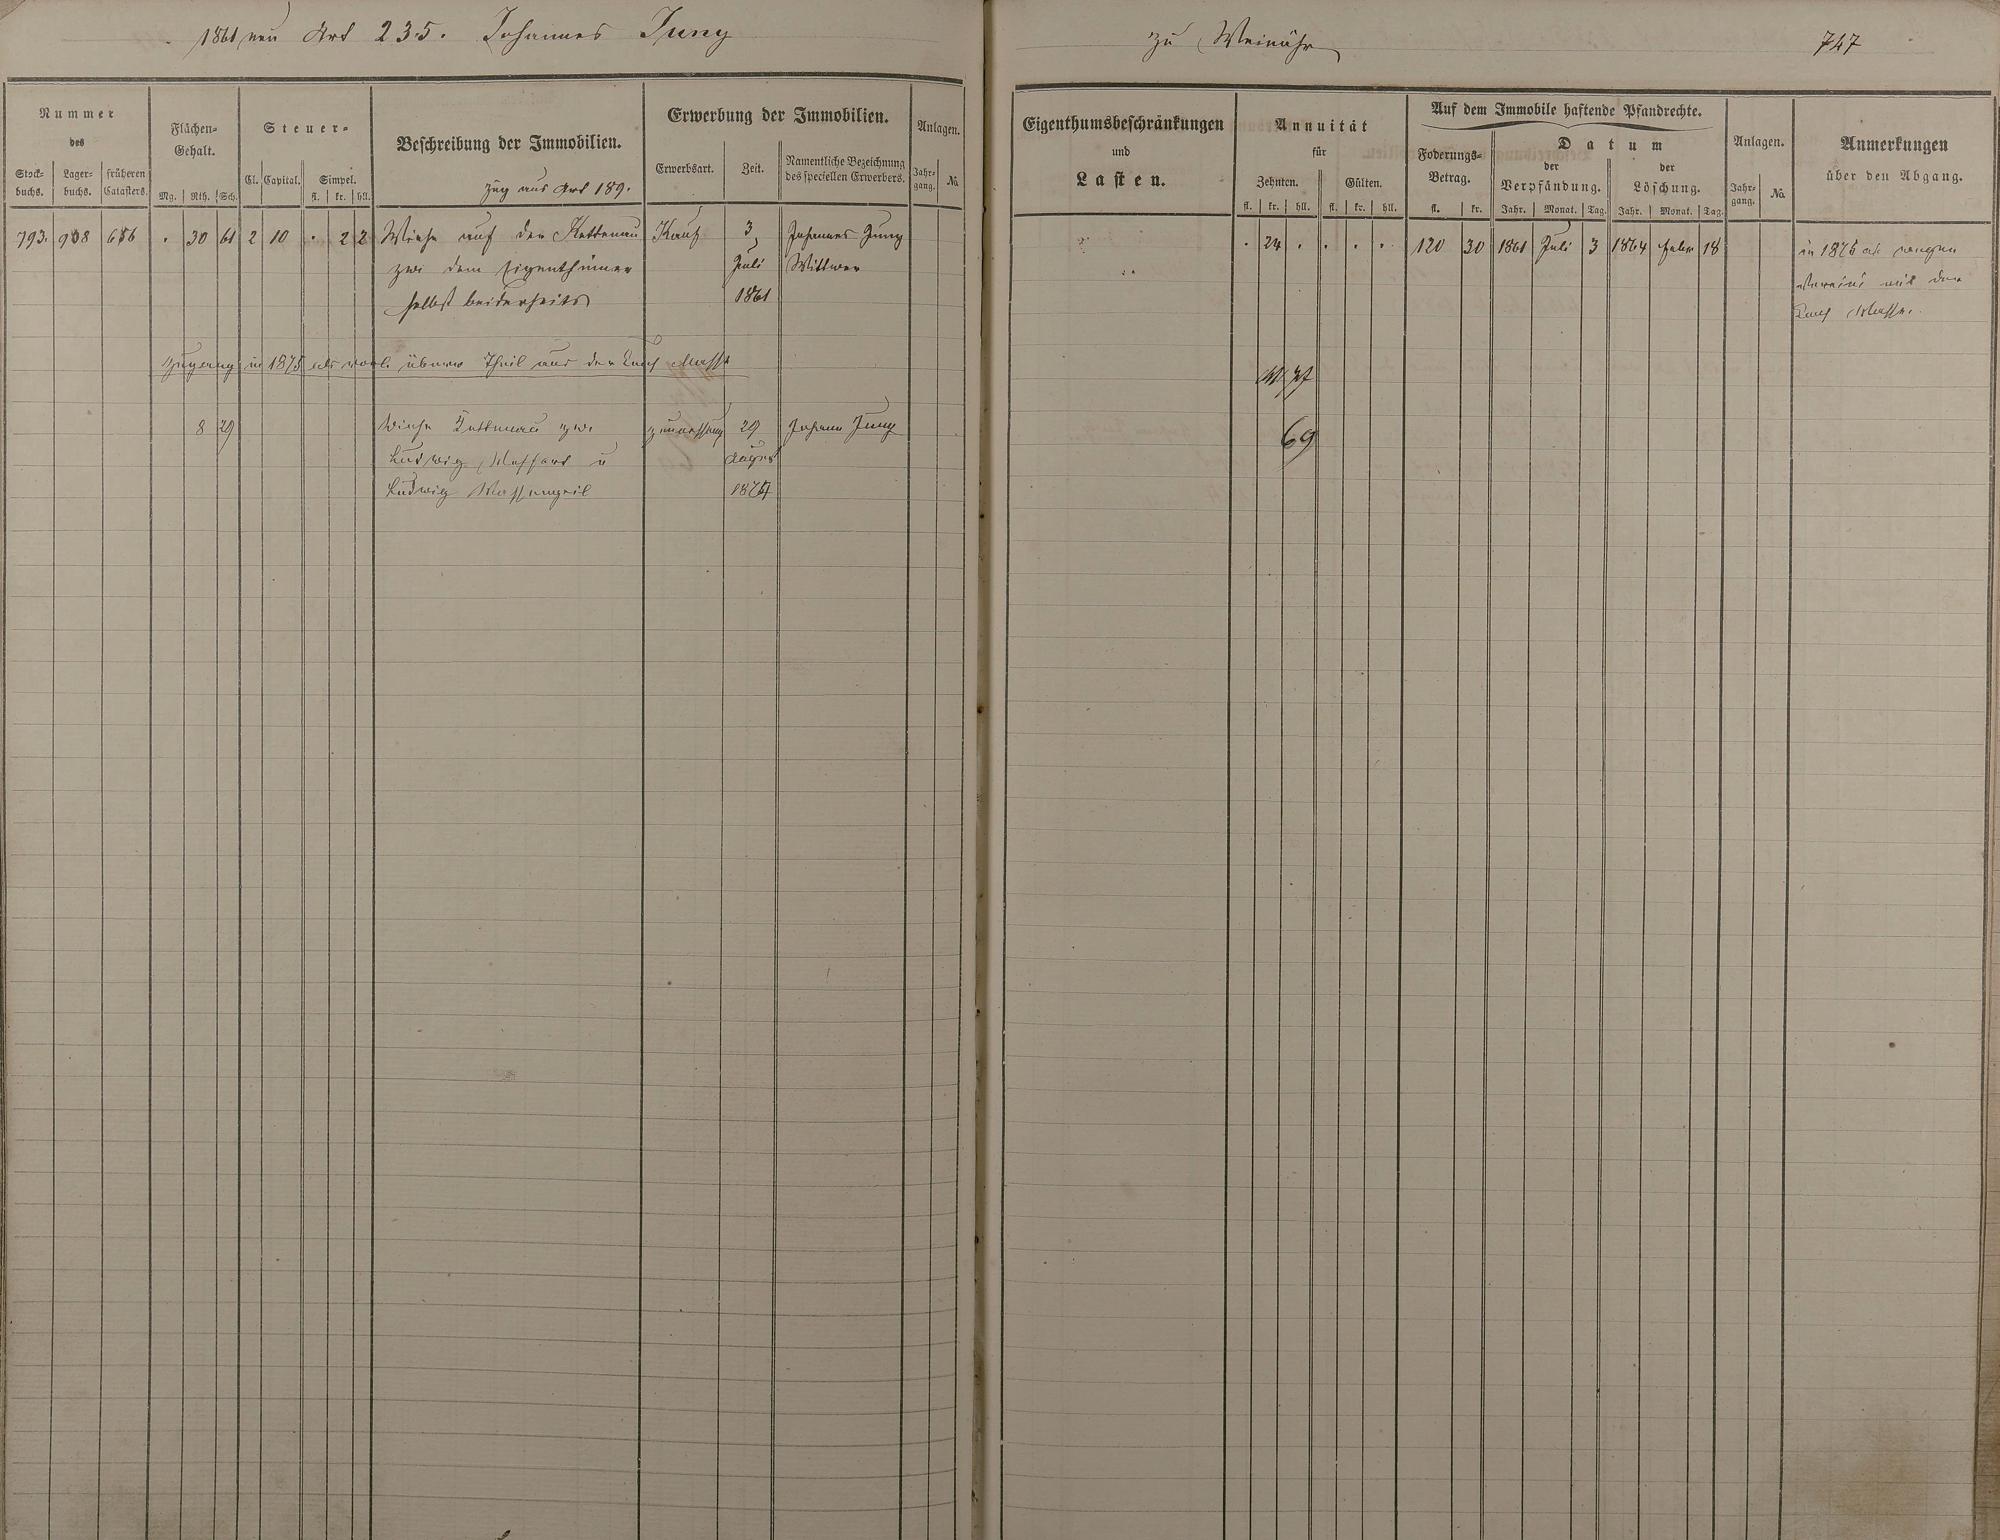 1861 neu Art 235. Johannes Jung
zu Weinähr
747
Nummer
des
Stock-
buchs.
Lager-
buchs.
früheren
Catasters.
Flächen-
Gehalt.
Mg. Rth. Sch.
Steuer-
Cl. Capital. Simpel.
fl. kr. hll.
Beschreibung der Immobilien.
Zug aus Art 189.
Erwerbung der Immobilien.
Erwerbsart. Zeit.
Namentliche Bezeichnung
des speciellen Erwerbers.
Anlagen.
Jahr-
gang.
No.
Eigenthumsbeschränkungen
und
Lasten.
Annuität
für
Zehnten. Gülten.
fl. kr. hll. fl. kr. hll.
Auf dem Immobile haftende Pfandrechte.
Foderungs-
Betrag.
fl. kr.
Datum
der
Verpfändung.
der
Löschung.
Jahr. Monat. Tag. Jahr. Monat. Tag.
Anlagen.
Jahr-
gang.
No.
Anmerkungen
über den Abgang.
793. 908 656 . 30 61 2 10 . 2 2 Wiese auf der Kettenau Kauf 3 Johannes Jung
zwi dem Eigenthümer Juli Wittwer
selbst beiderseits 1861
. 24 . . . . 120 30 1861 Juli 3 1864 Febr 18
in 1875 ab wegen
Vereini mit der
Cons Masse.
Zugang in 1875 als Theil aus der Cons Masse
8 29 Wiese Kettenau zwi 29 Johann Jung
Ludwig u August
Ludwig Massengeil 1874
69